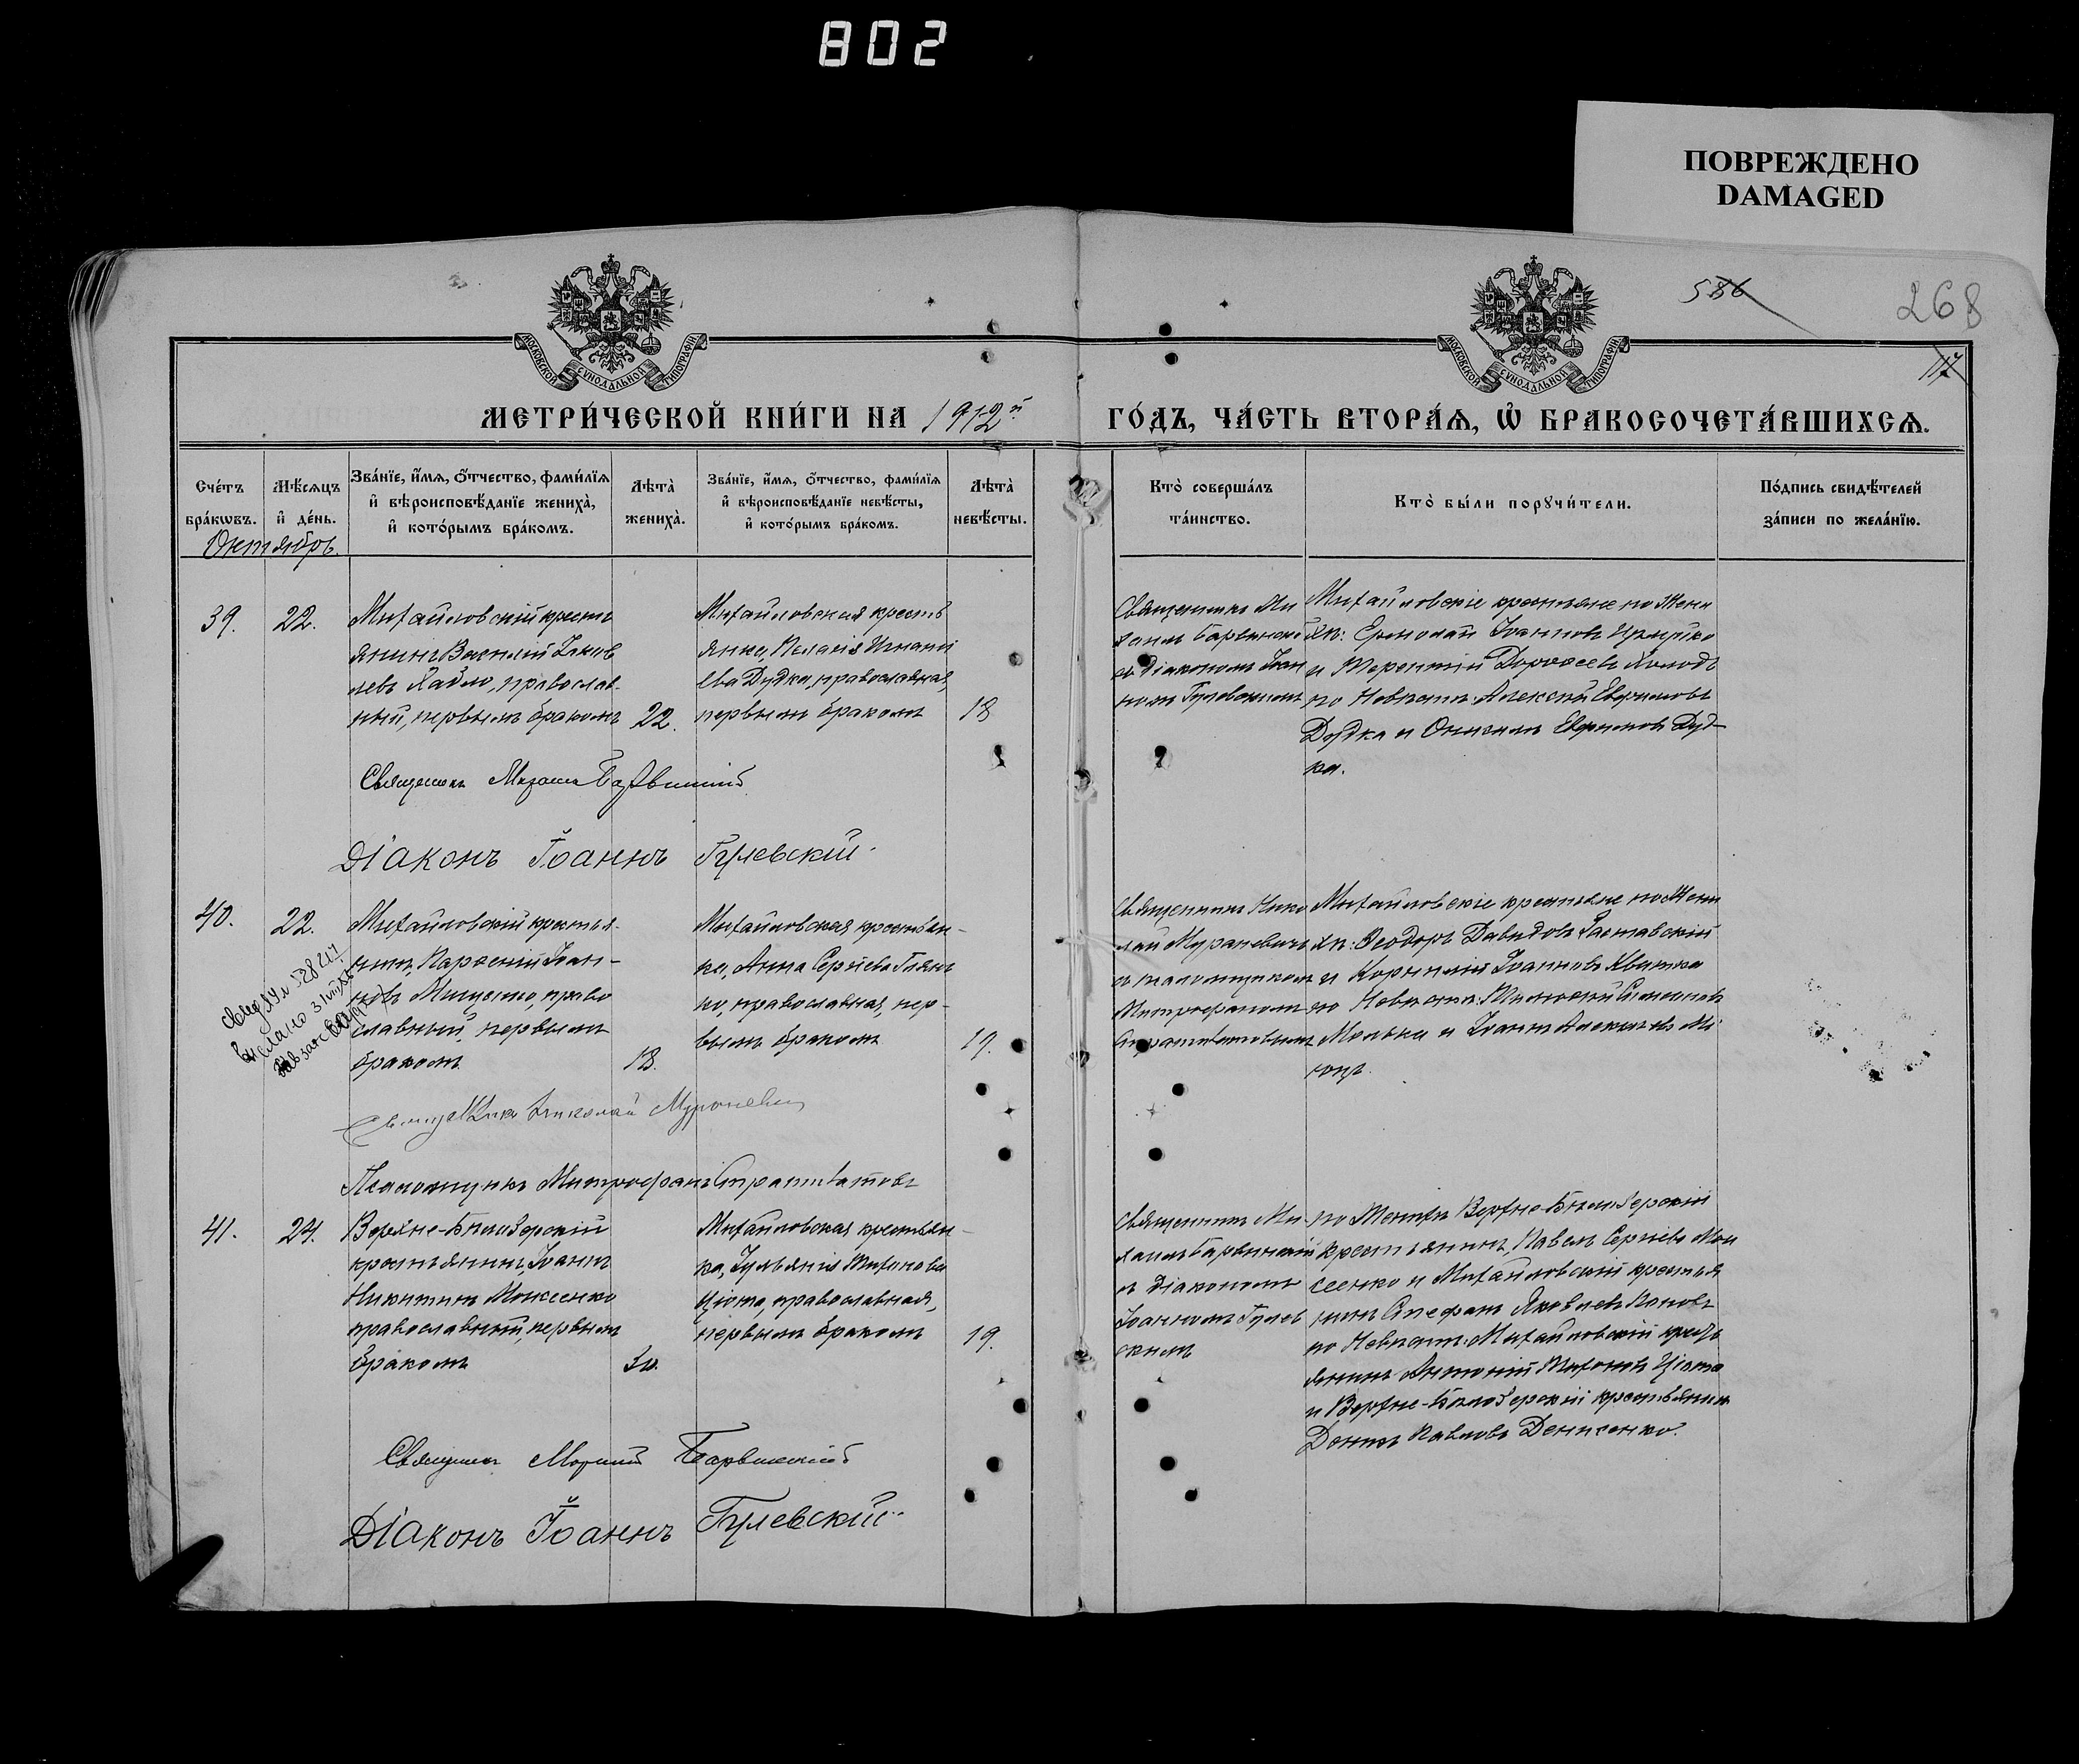 802
ПОВРЕЖДЕНО
DAMAGED
586
268
117
МОСКОВСКОЙ СѴНОДАЛЬНОЙ ТИПОГРАФІИ
МОСКОВСКОЙ СѴНОДАЛЬНОЙ ТИПОГРАФІИ
МЕТРИ́ЧЕСКОЙ КНИ́ГИ НА 1912й
ГО́ДЪ, ЧА́СТЬ ВТОРА́Ѧ, Ѡ҆ БРАКОСОЧЕТА́ВШИХСѦ.
Сче́тъ
бра́кѡвъ.
Мѣ́сѧцъ
и҆ де́нь.
Зва́нїе, и҆́мѧ, ѻ҆́тчество, фами́лїѧ
и҆ вѣроисповѣ́данїе жениха̀,
и҆ кото́рымъ бра́комъ.
Лѣта̀
жениха̀.
Зва́нїе, и҆́мѧ, ѻ҆́тчество, фами́лїѧ
и҆ вѣроисповѣ́данїе невѣ́сты,
и҆ кото́рымъ бра́комъ.
Лѣта̀
невѣ́сты.
Кто̀ соверша́лъ
та́инство.
Кто̀ бы́ли порꙋчи́тели.
По́дпись свидѣ́телей
за́писи по жела́нїю.
Октябрь.
39.
22.
Михайловскій кресть
янинъ Василій Іаков
левъ Хайло, православ-
ный, первымъ бракомъ
22.
Михайловская кресть
янка, Пелагія Игнатi
ева Дудка, православная,
первымъ бракомъ
18
Священникъ Ми
хаилъ Барвинскі
съ діакономъ Іоан
номъ Гулевскимъ
Михайловскіе крестьяне по Жени
хѣ: Ермолай Іоанновъ
и Терентій Дорофеевъ Холодъ
по Невѣстѣ: Алексѣй Евфимовъ
Дудка и Онисимъ Евфимовъ Дуд-
ка.
Священникъ Михаилъ Барвинскій
Діаконъ Іоаннъ Гулевскій
40.
22.
Михайловскій крестья-
нинъ, Парѳеній Іоан-
новъ Мищенко, право
славный, первымъ
бракомъ
18.
Михайловская крестьян-
ка, Анна Сергіева Глянь
ко, православная, пер-
вымъ бракомъ
19.
Священникъ Нико
лай Мураневичъ
и псаломщикомъ
Митрофаномъ
Михайловскіе крестьяне по Жени
хѣ: Ѳеодоръ Давидовъ Заставскій
и Корнилій Іоанновъ Квитка
по Невѣстѣ: Тимофей Симеоновъ
и Іоаннъ Алексіевъ Мі
Священникъ Николай Мураневичъ
Псаломщикъ Митрофанъ Стратилатовъ
41.
24.
Верхне-Бѣлозерскій
крестьянинъ, Іоаннъ
Никитинъ Моисеенко
православный, первымъ
бракомъ
Михайловская крестьян-
ка, Іульянія Тихонова
Цюпа, православная,
первымъ бракомъ
19.
Священникъ Ми
хаилъ Барвинскій
съ діакономъ
Іоанномъ Гулев
скимъ
по Женихѣ Верхне-Бѣлозерскій
крестьянинъ, Павелъ Сергіевъ Мои
сеенко и Михайловскій крестья
нинъ Стефанъ Яковлевъ Поповъ
по Невѣстѣ: Михайловскій кресть
янинъ Антоній Тихоновъ Цюпа
и Верхне-Бѣлозерскій крестьянинъ
Павловъ Денисенко.
Священникъ Михаилъ Барвинскій
Діаконъ Іоаннъ Гулевскій